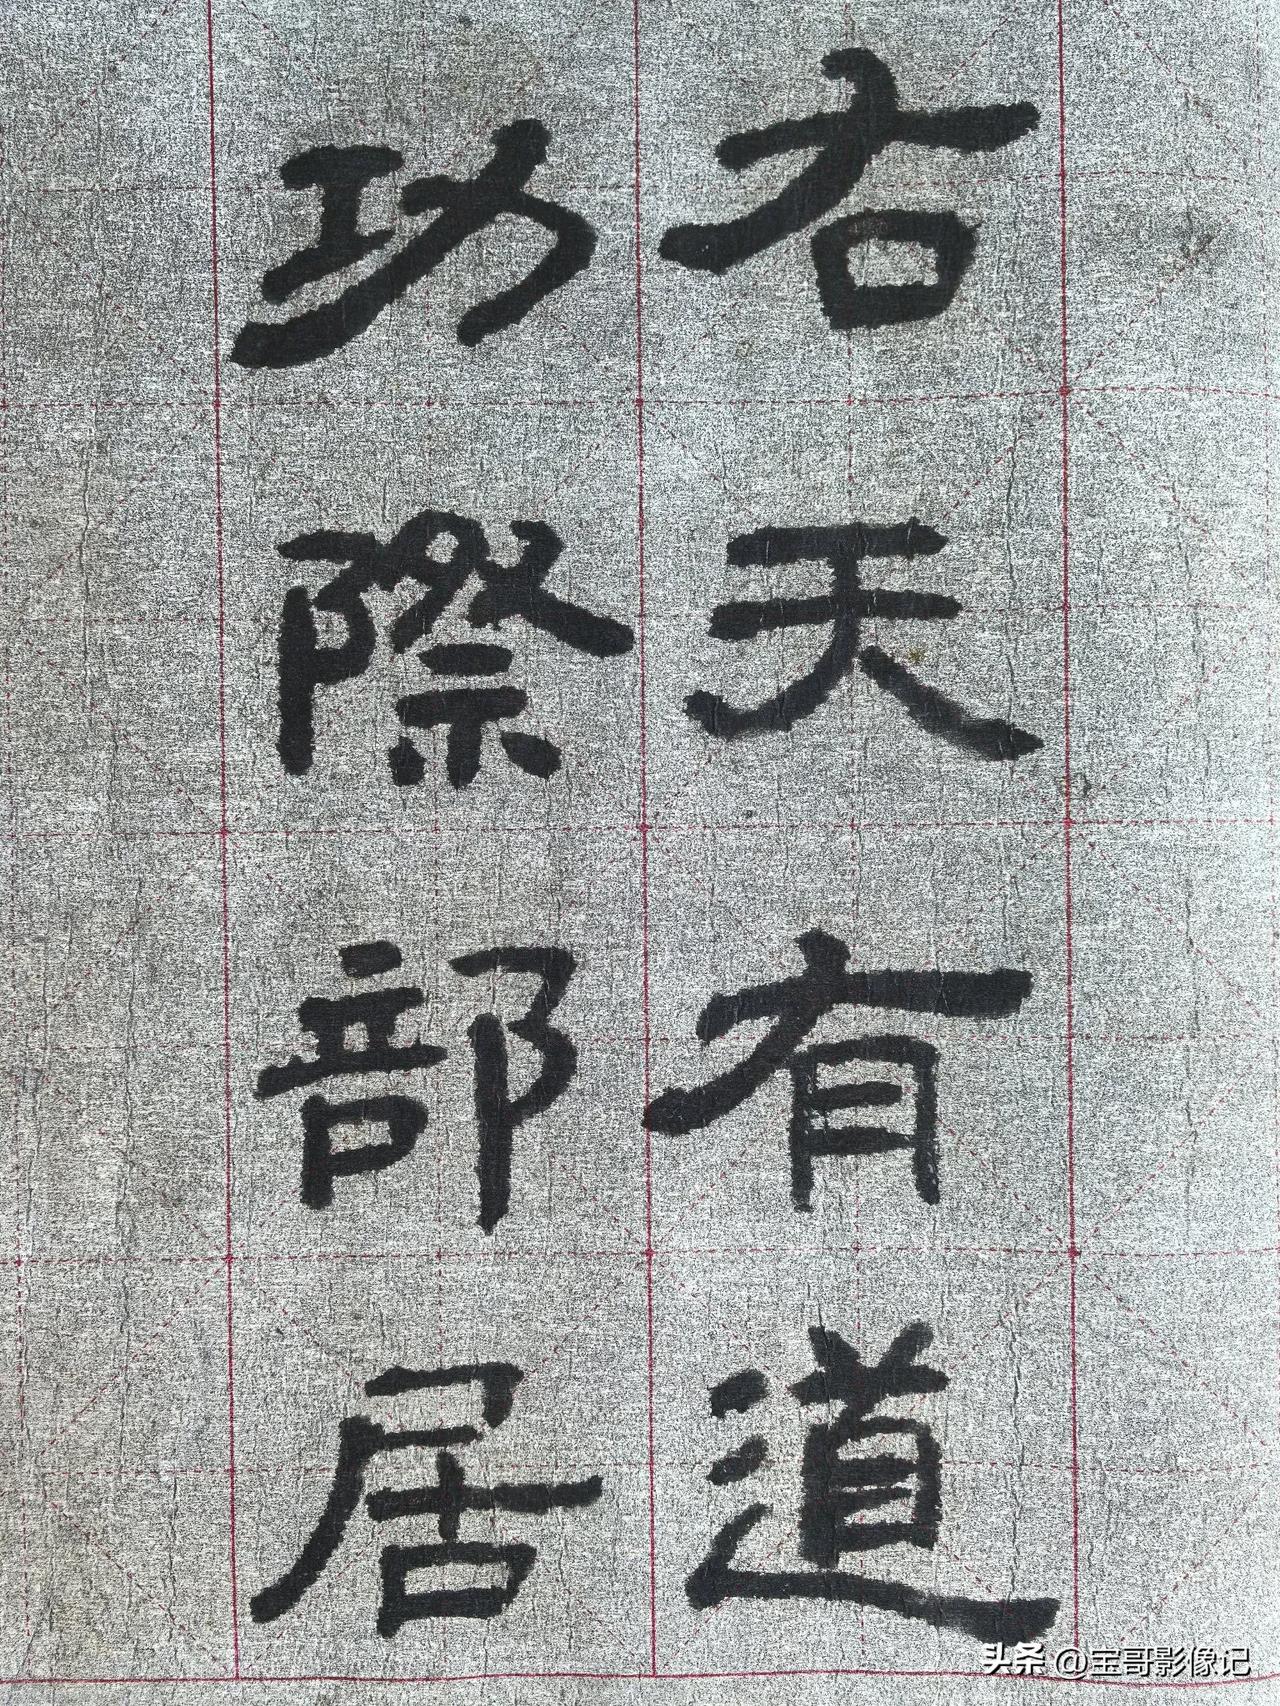 右天有道
功際部居
头条 @宝哥影像记